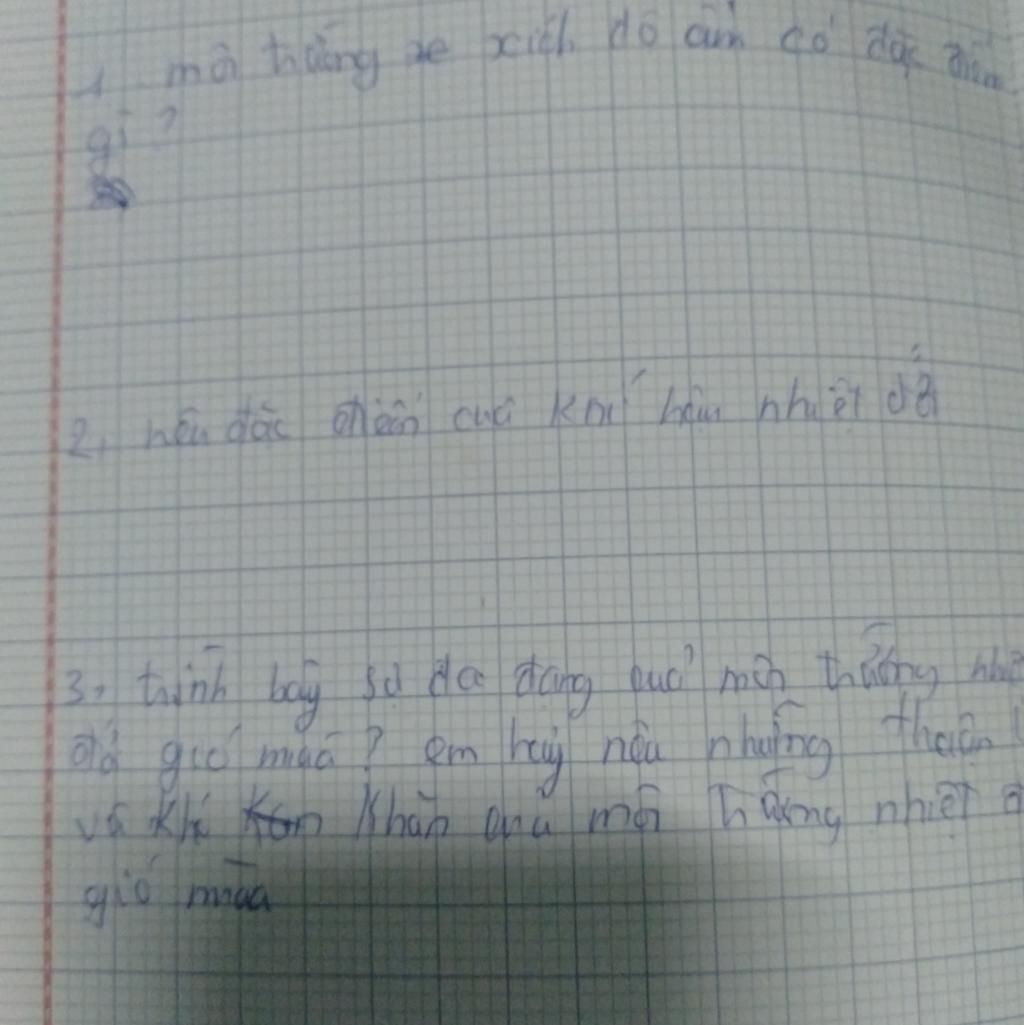 1 môi trường xích đô ẩm có đặc điểm
gì?
2, nêu đặc điểm của khí hậu nhiệt đới
3, trình bày sự đa dạng của môi trường
đới gió mùa? em hãy nêu những thuận
và khó khăn của môi trường nhiệt đ
gió mùa